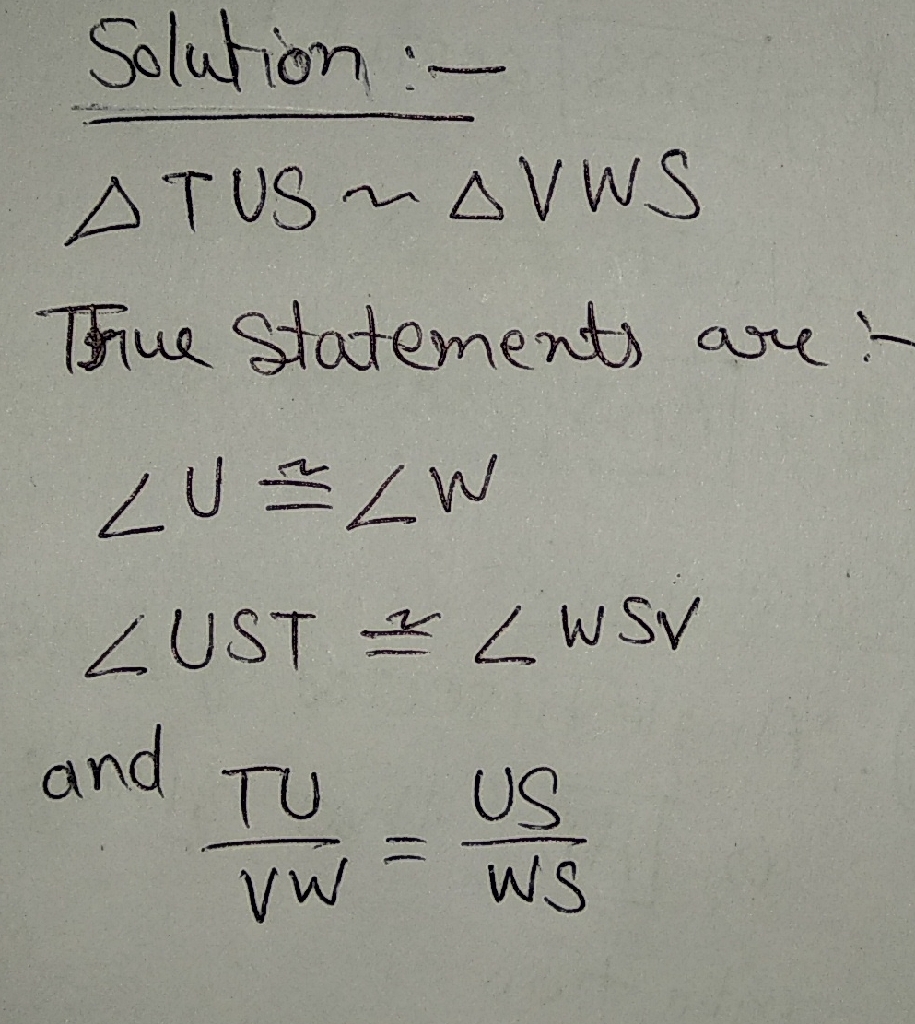 Solution :-
△TUS ~ △VWS
True Statements are :-
∠U ≅ ∠W
∠UST ≅ ∠WSV
and TU/VW = US/WS